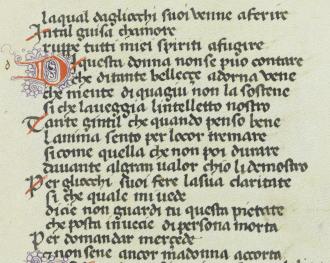 laqual dagliocchi suoi venne aferire
Intal guisa chamore
ruppe tutti miei spiriti afugire
Di questa donna non se puo contare
che ditante bellecce adorna vene
che mente di quagiu non la sostene
si che laveggia lintelletto nostro
Tante gintil che quando penso bene
lanima sento per locor tremare
sicome quella che non poi durare
davante algran valor chio li demostro
Per gliocchi suoi fere lasua claritate
si che quale mi vede
dicie non guardi tu questa pietate
che posta invecie di persona morta
Per domandar mercede
et non sene ancor madonna accorta